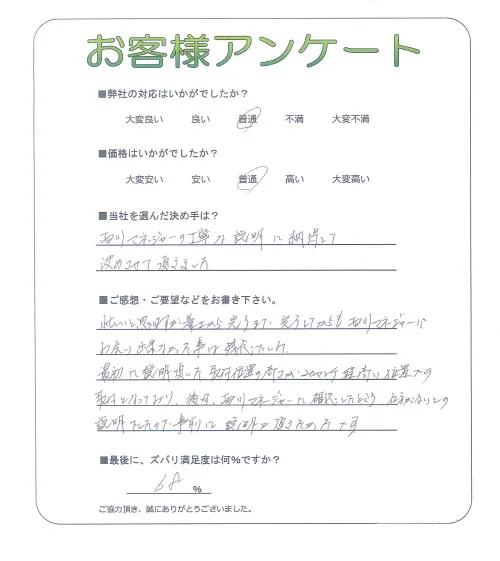 お客様アンケート
■弊社の対応はいかがでしたか？
大変良い 良い 普通 不満 大変不満
■価格はいかがでしたか？
大変安い 安い 普通 高い 大変高い
■当社を選んだ決め手は？
マネジャーの丁寧な説明に納得して
決めさせて頂きました
■ご感想・ご要望などをお書き下さい。
忙しいと思いますが着工から完了まで 完了してからも マネジャーに
最初に説明頂いた取付位置の高さが 程高い位置での
取付となっており、後日、 マネジャーに確認したところ 仕方がないとの
説明でしたので事前に説明が頂きたかったです
■最後に、ズバリ満足度は何％ですか？
68 %
ご協力頂き、誠にありがとうございました。